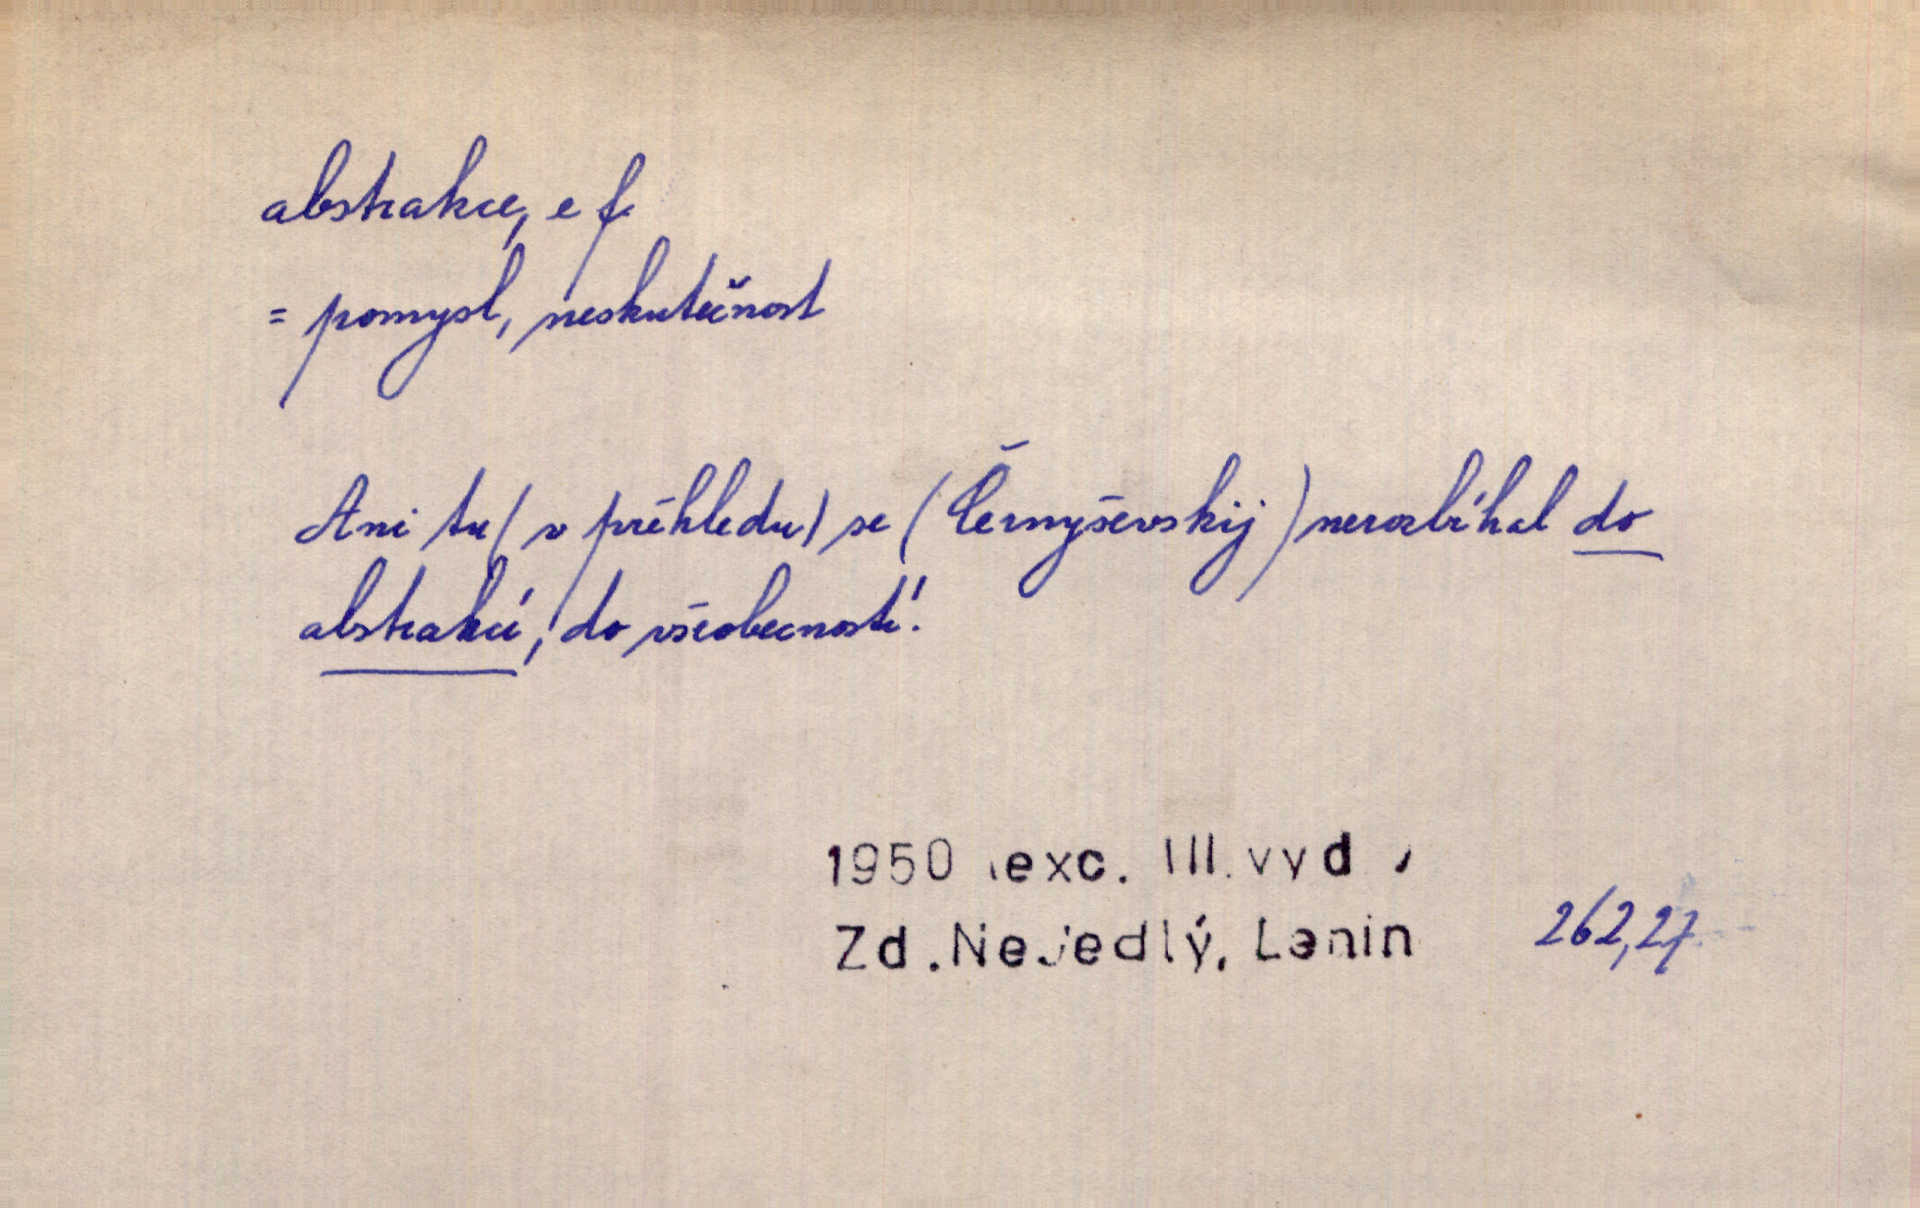 abstrakce, e f.
= pomysl, neskutečnost
Ani tu (v přehledu) se (Černyševskij) nerozbíhal do
abstrakcí, do všeobecností.
1950 exc. III. vyd.
Zd. Nejedlý, Lenin 262,27